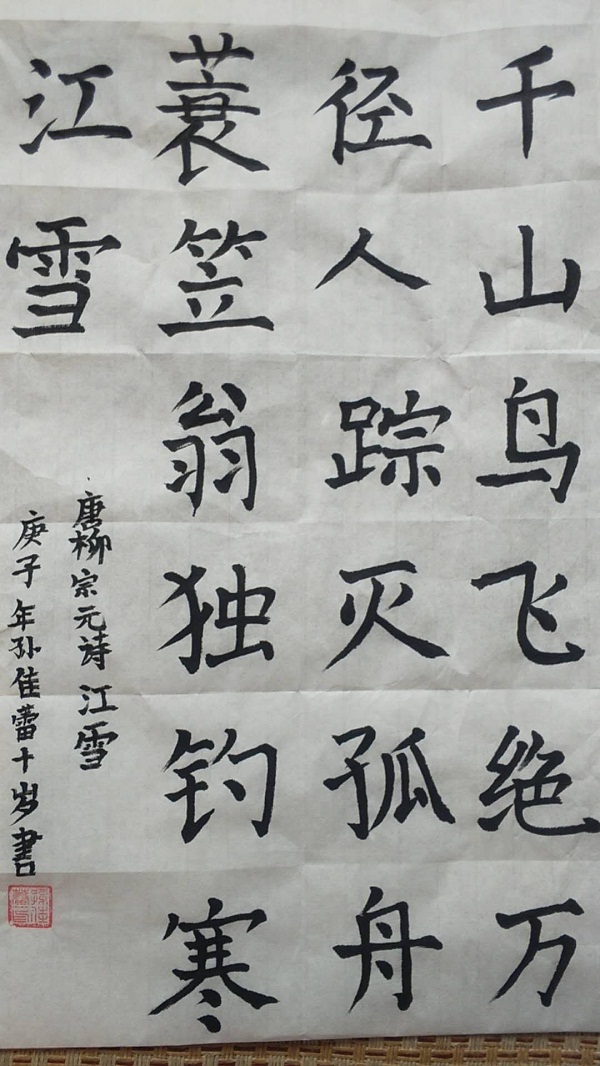 千山鸟飞绝万
径人踪灭孤舟
蓑笠翁独钓寒
江雪
唐柳宗元诗江雪
庚子年孙佳蕾十岁書